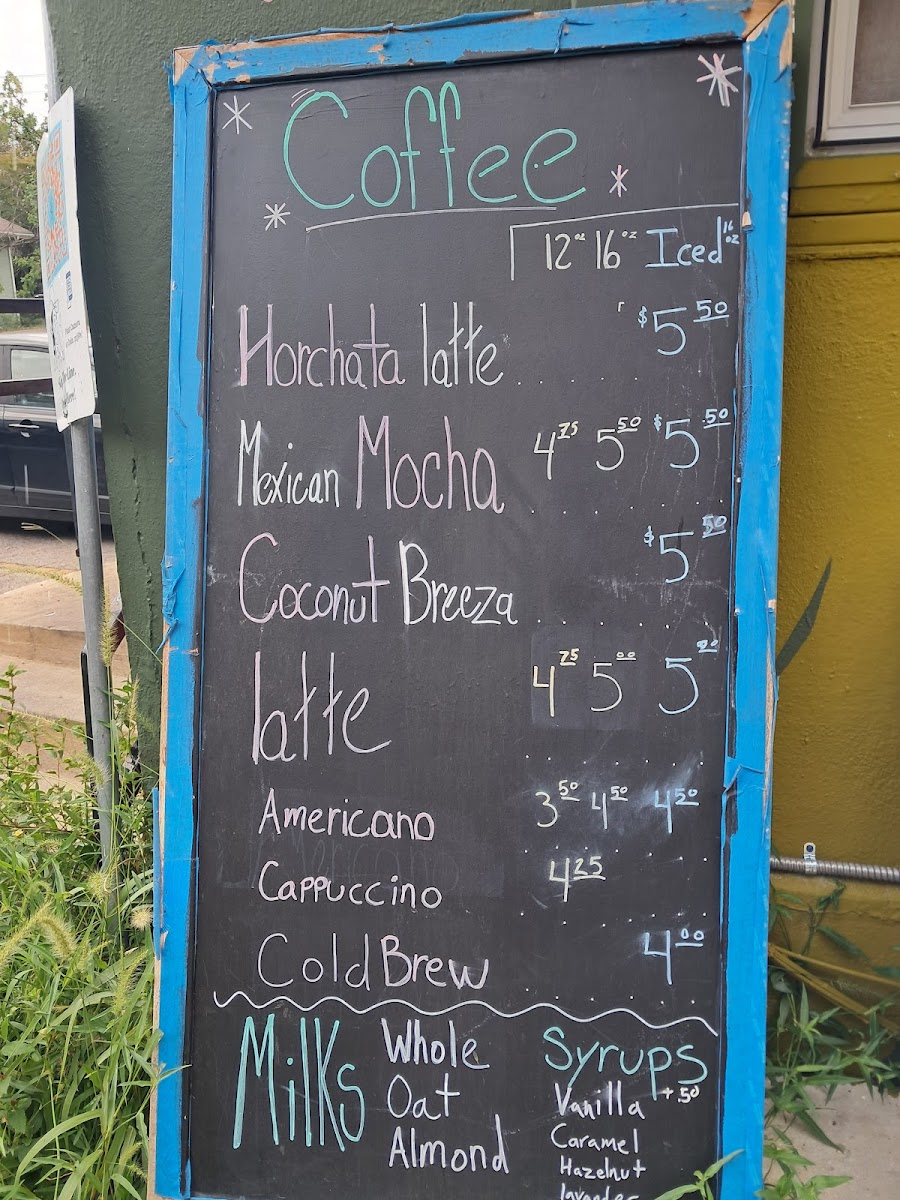 Coffee
12oz 16oz Iced 16oz
Horchata latte $5.50
Mexican Mocha 4.75 5.50 $5.50
Coconut Breeza $5.50
latte 4.75 5.00
Americano 3.50 4.50 4.50
Cappuccino 4.25
Cold Brew 4.00
Milks
Whole
Oat
Almond
Syrups
+.50
Vanilla
Caramel
Hazelnut
lavender